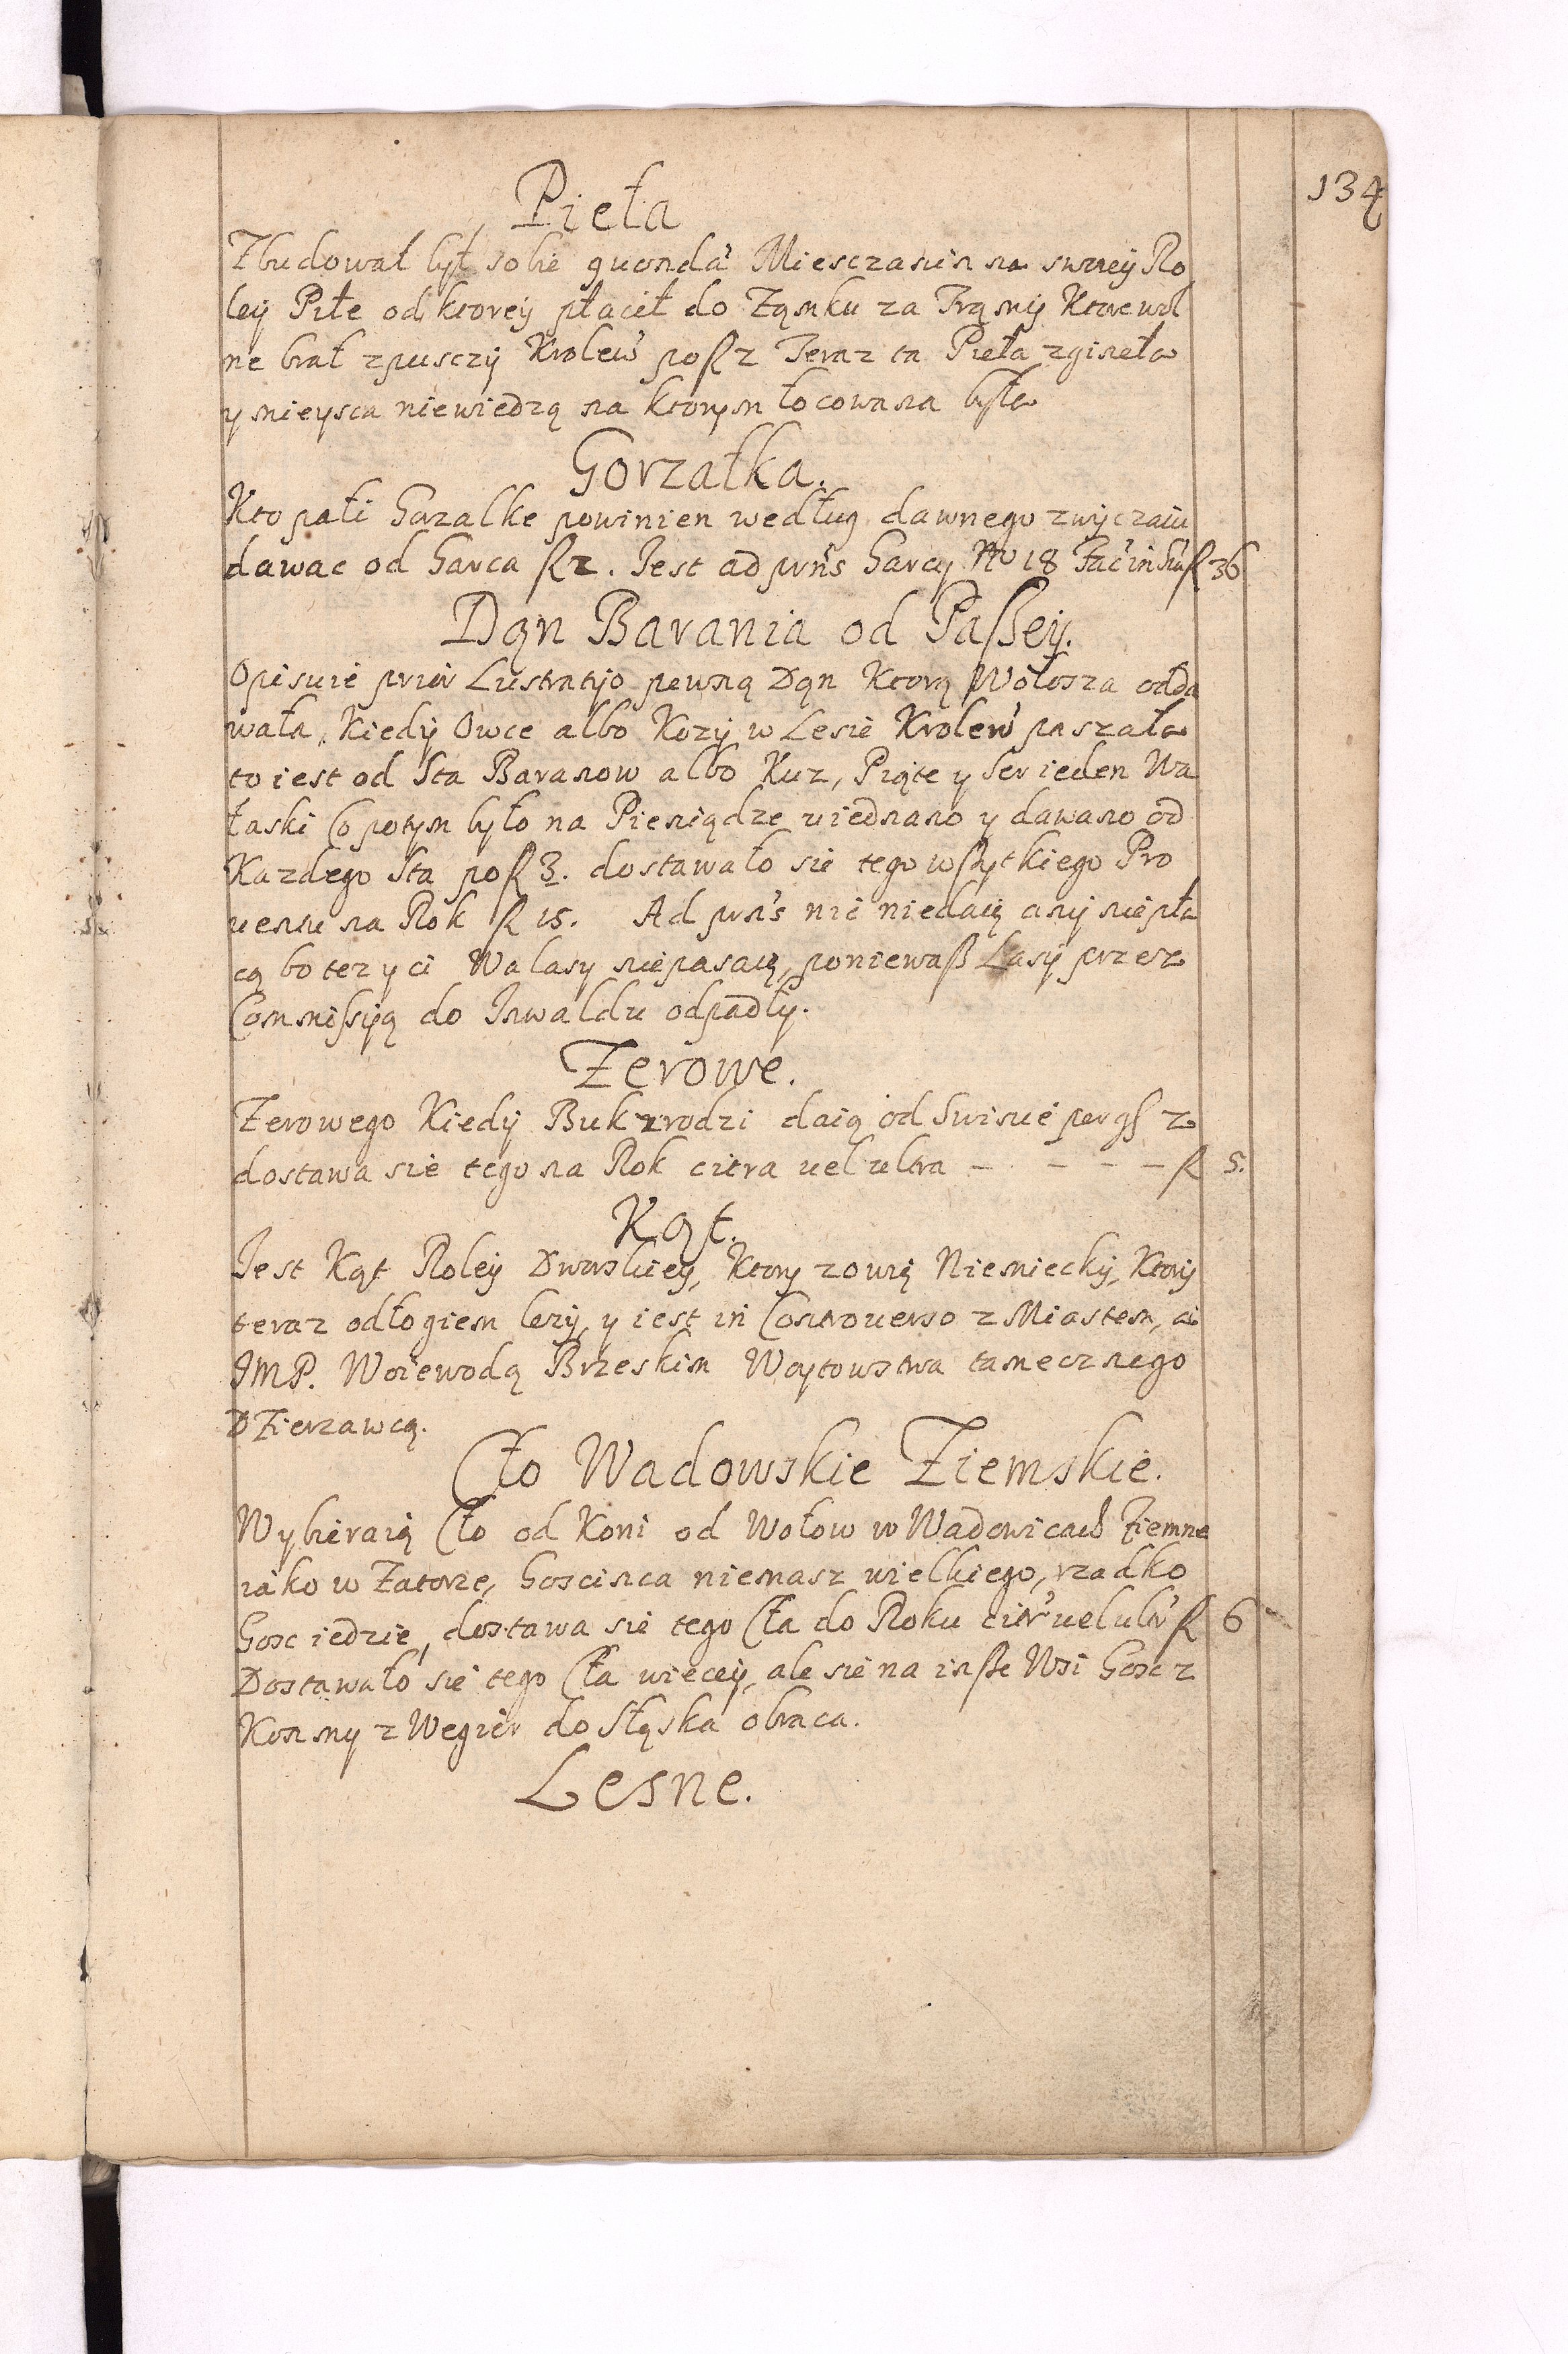 134
Pieła
Zbudował był sobie quondā Miesczanin na swoiey Ro
ley Piłe od ktorey płacił do Ząmku za Trąmy Ktore wol
ne brał z pusczy Krolew po fl 2 Teraz ta Pieła zgineła
y mieysca niewiedzą na ktorym łocowana była
Gorzałka.
Kto pali Gorzalke powinien według dawnego zwyczaiu
dawac od Garca fl 2. Jest ad prns Garcy No 18 Facin su fl 36
Dąn Barania od Paßey.
Opisuie prior Lustratyo pewną Dąn Ktorą Wołosza odda
wała, Kiedy Owce albo Kozy w Lesie Krolew paszała
to iest od Sta Baranow albo Kuz, Piąte y Ser ieden Wa
łaski Co potym było na Pieniądze uiednano y dawano od
Kazdego Sta po fl 3. dostawało sie tego wßytkiego Pro
uentu na Rok fl 15. Ad prns nic niedaią any niepła
cą bo tez y ci Walasy niepasaią, poniewaß Lasy przez
Commissyą do Inwaldu odpadły.
Zerowe.
Zerowego Kiedy Buk zrodzi daią od Swinie per gs 2
dostawa sie tego na Rok citra uel ultra - - - - fl 5.
Kąt.
Jest Kąt Roley Dworskiey, Ktory zowią Niemiecky, Ktory
teraz odłogiem lezy, y iest in Controuerso z Miastem, a
JMP. Woiewodą Brzeskim Woytowstwa tamecznego
Dzierzawcą.
Cło Wadowskie Ziemskie.
Wybieraią Cło od Koni od Wołow w Wadowicach Ziemne
iako w Zatorze, Goscinca niemasz wielkiego, rzadko
Gosc iedzie, dostawa sie tego Cła do Roku citr uel ultr fl 6
Dostawało sie tego Cła wiecey, ale sie na inße Wsi Gosc z
Konmy z Wegier do Sląska obraca.
Lesne.